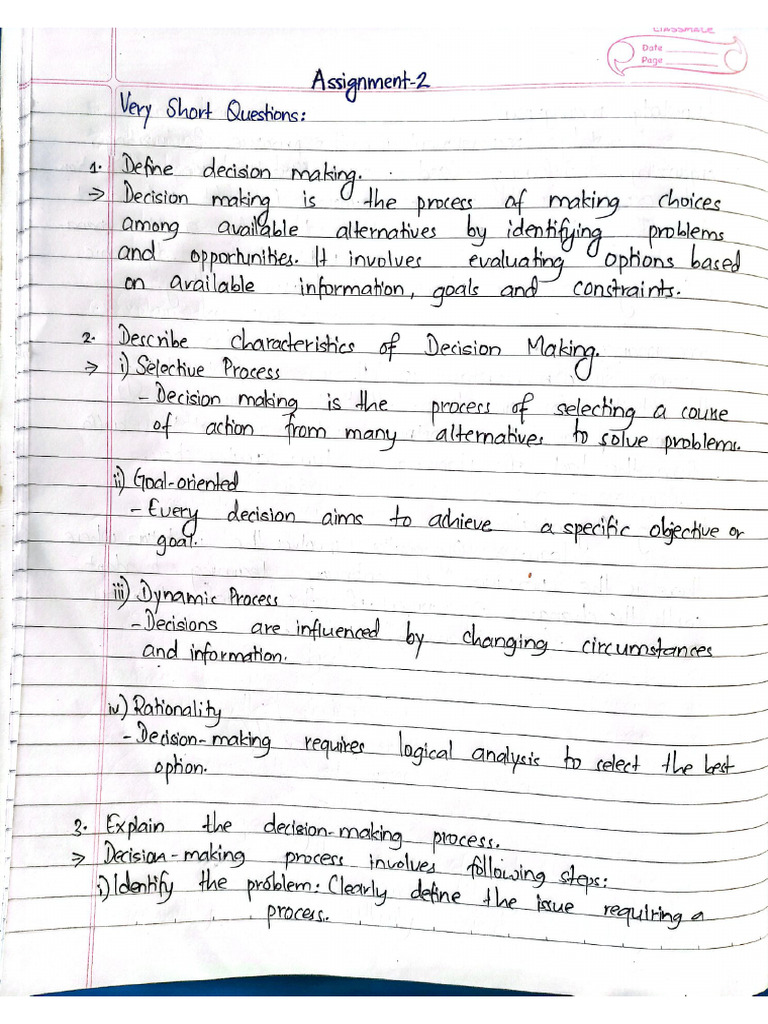 classmate
Date
Page
Assignment-2
Very Short Questions:
1. Define decision making.
⇒ Decision making is the process of making choices
among available alternatives by identifying problems
and opportunities. It involves evaluating options based
on available information, goals and constraints.
2. Describe characteristics of Decision Making.
⇒ i) Selective Process
- Decision making is the process of selecting a course
of action from many alternatives to solve problems.
ii) Goal-oriented
- Every decision aims to achieve a specific objective or
goal.
iii) Dynamic Process
- Decisions are influenced by changing circumstances
and information.
iv) Rationality
- Decision-making requires logical analysis to select the best
option.
3. Explain the decision-making process.
⇒ Decision-making process involves following steps:
i) Identify the problem: Clearly define the issue requiring a
process.